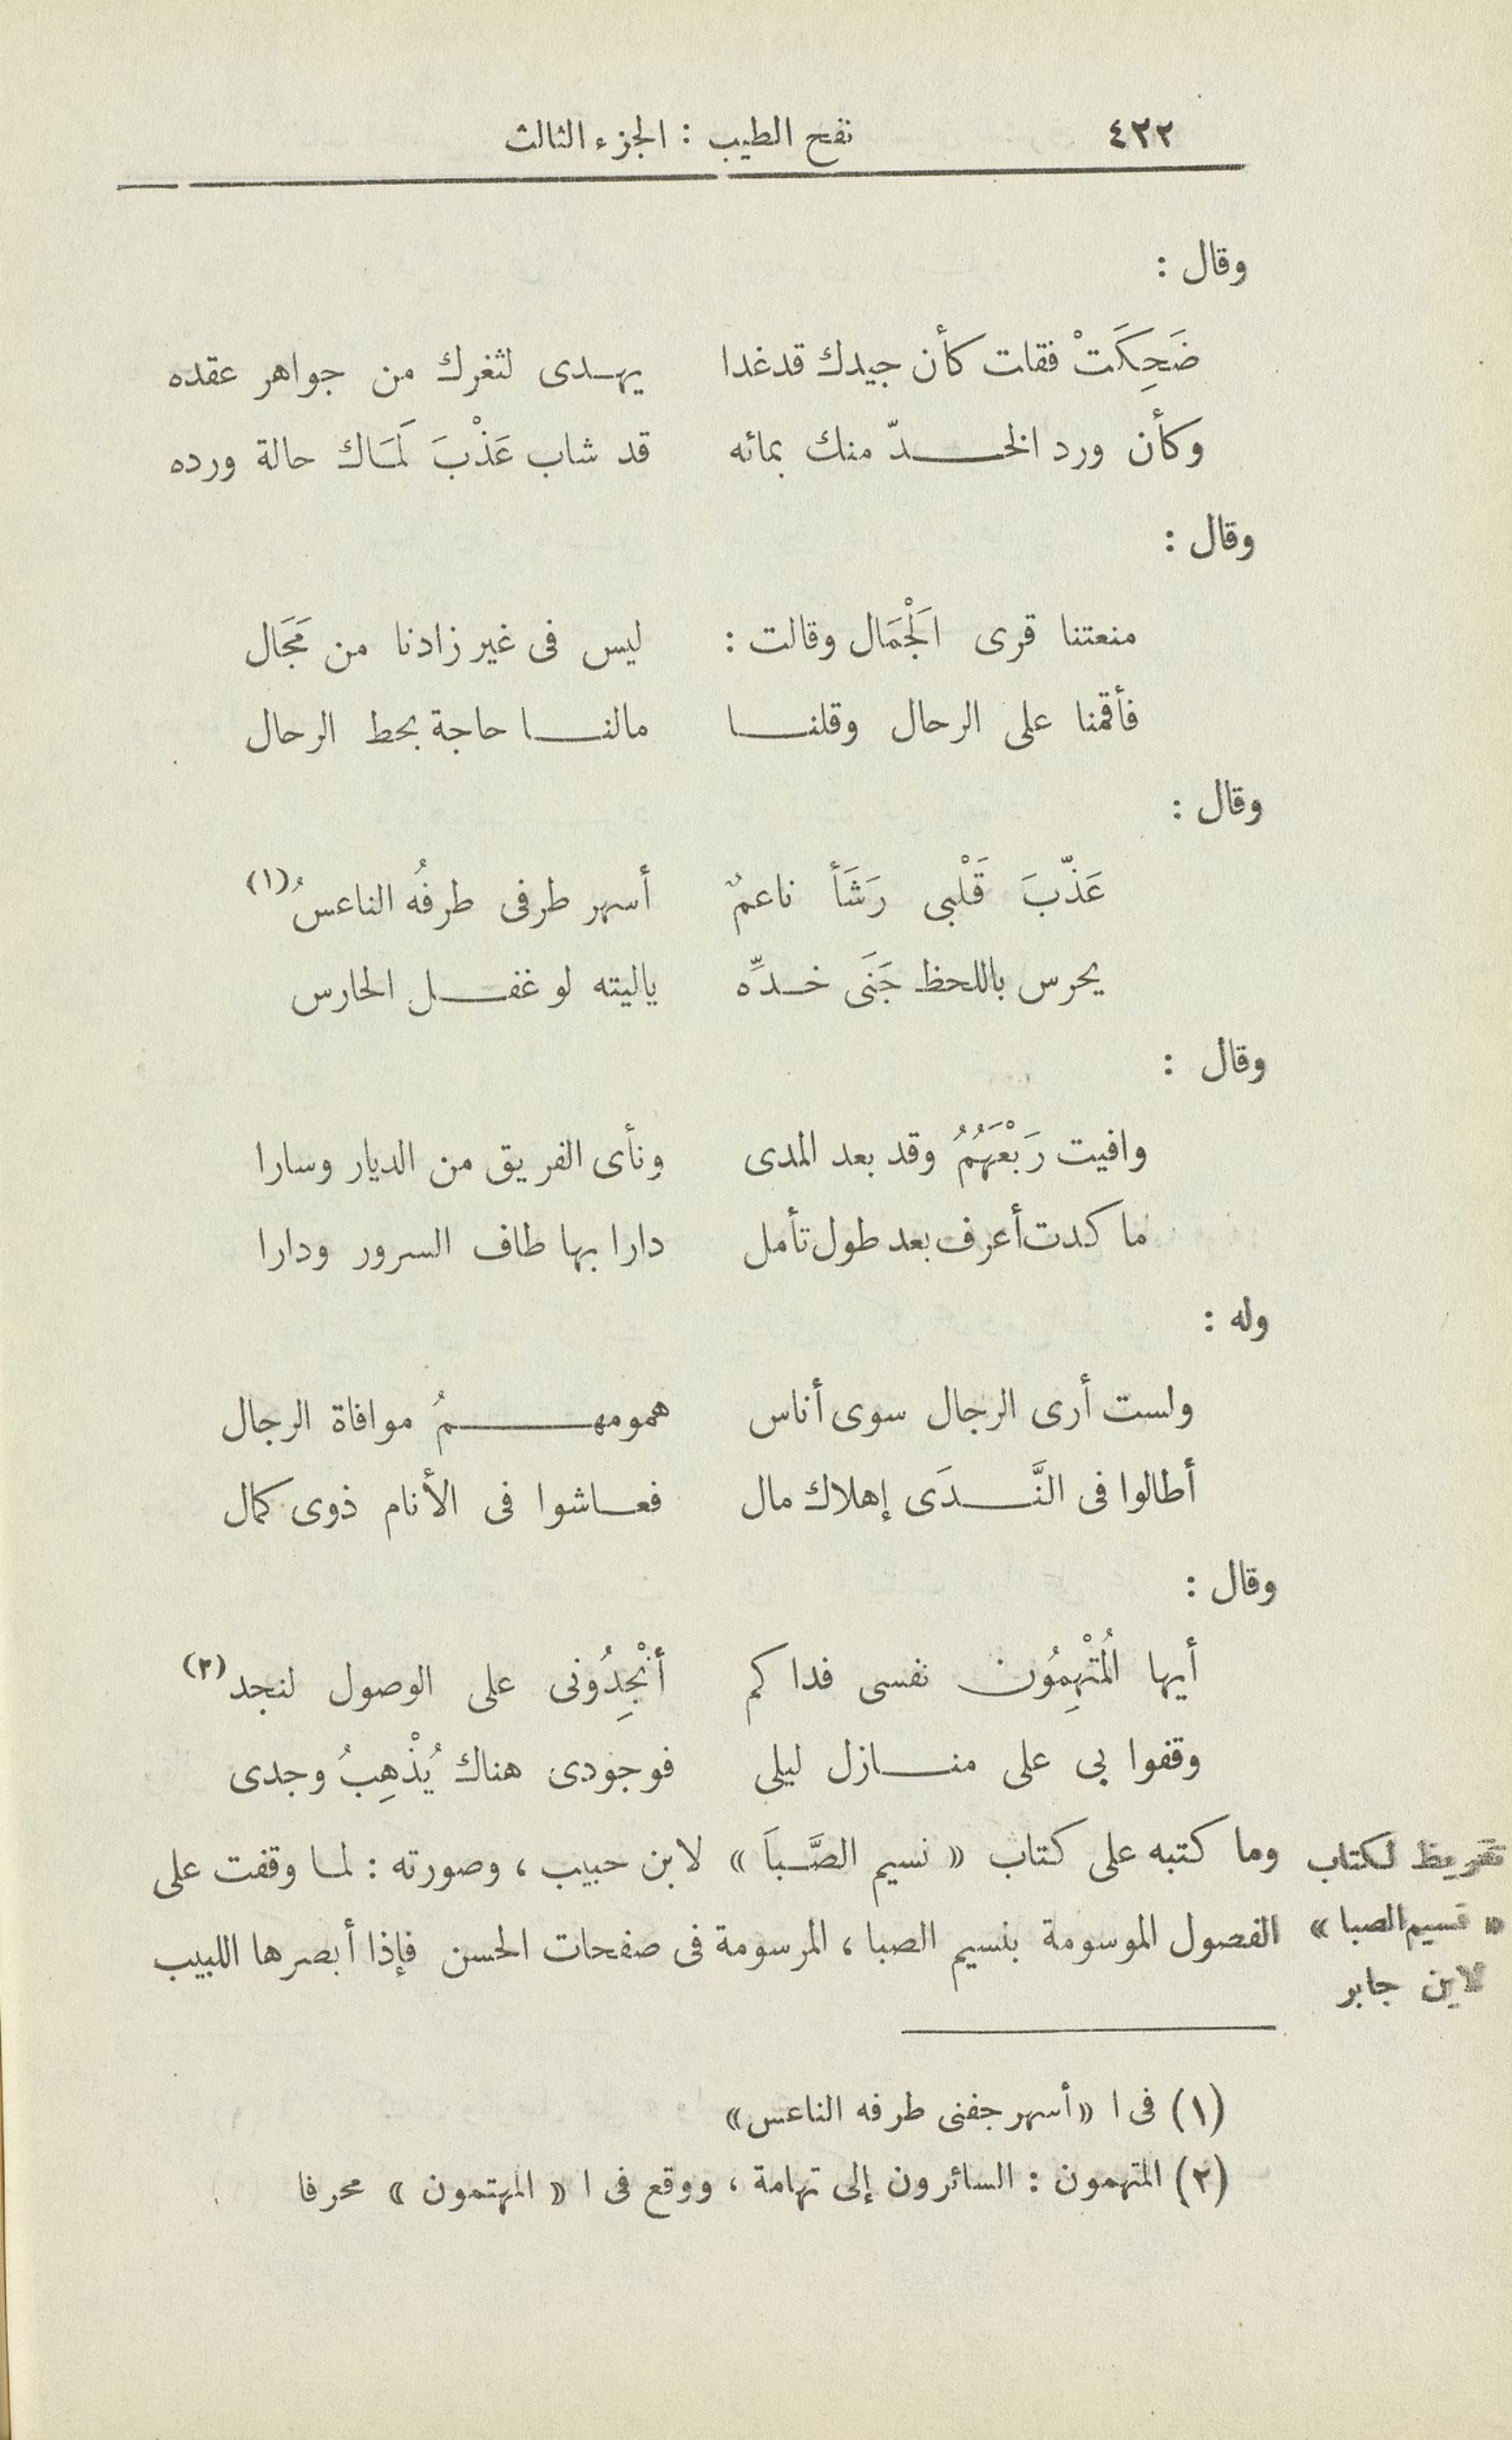 ٤٢٢ نفح الطيب : الجزء الثالث
وقال :
ضَحِكَتْ فقلت كأن جيدك قد غدا يهدى لثغرك من جواهر عقده
وكأن ورد الخدّ منك بمائه قد شاب عَذْبَ لَمَاك حالة ورده
وقال :
منعتنا قرى الَجْمَال وقالت : ليس فى غير زادنا من مَجَال
فأقمنا على الرحال وقلنا مالنا حاجة بحط الرحال
وقال :
عَذّبَ قَلْبى رَشَأ ناعمٌ أسهر طرفى طرفُه الناعسُ (١)
يحرس باللحظ جَنَى خدِّه ياليته لو غفل الحارس
وقال :
وافيت رَبْعَهَُمُ وقد بعد المدى ونأى الفريق من الديار وسارا
ما كدت أعرف بعد طول تأمل دارا بها طاف السرور ودارا
وله :
ولست أرى الرجال سوى أناس همومهمُ موافاة الرجال
أطالوا فى النَّدَى إهلاك مال فعاشوا فى الأنام ذوى كمال
وقال :
أيها الُمتْهِمُون نفسى فداكم أنْجِدُونى على الوصول لنجد (٢)
وقفوا بى على منازل ليلى فوجودى هناك يُذْهِبُ وجدى
وما كتبه على كتاب « نسيم الصَّبَا » لابن حبيب ، وصورته : لما وقفت على
الفصول الموسومة بنسيم الصبا ، المرسومة فى صفحات الحسن فإذا أبصرها اللبيب
تقريظ لكتاب
« نسيم الصبا »
لابن جابر
(١) فى ا « أسهر جفنى طرفه الناعس »
(٢) المتهمون : السائرون إلى تهامة ، ووقع فى ا « المهتمون » محرفا